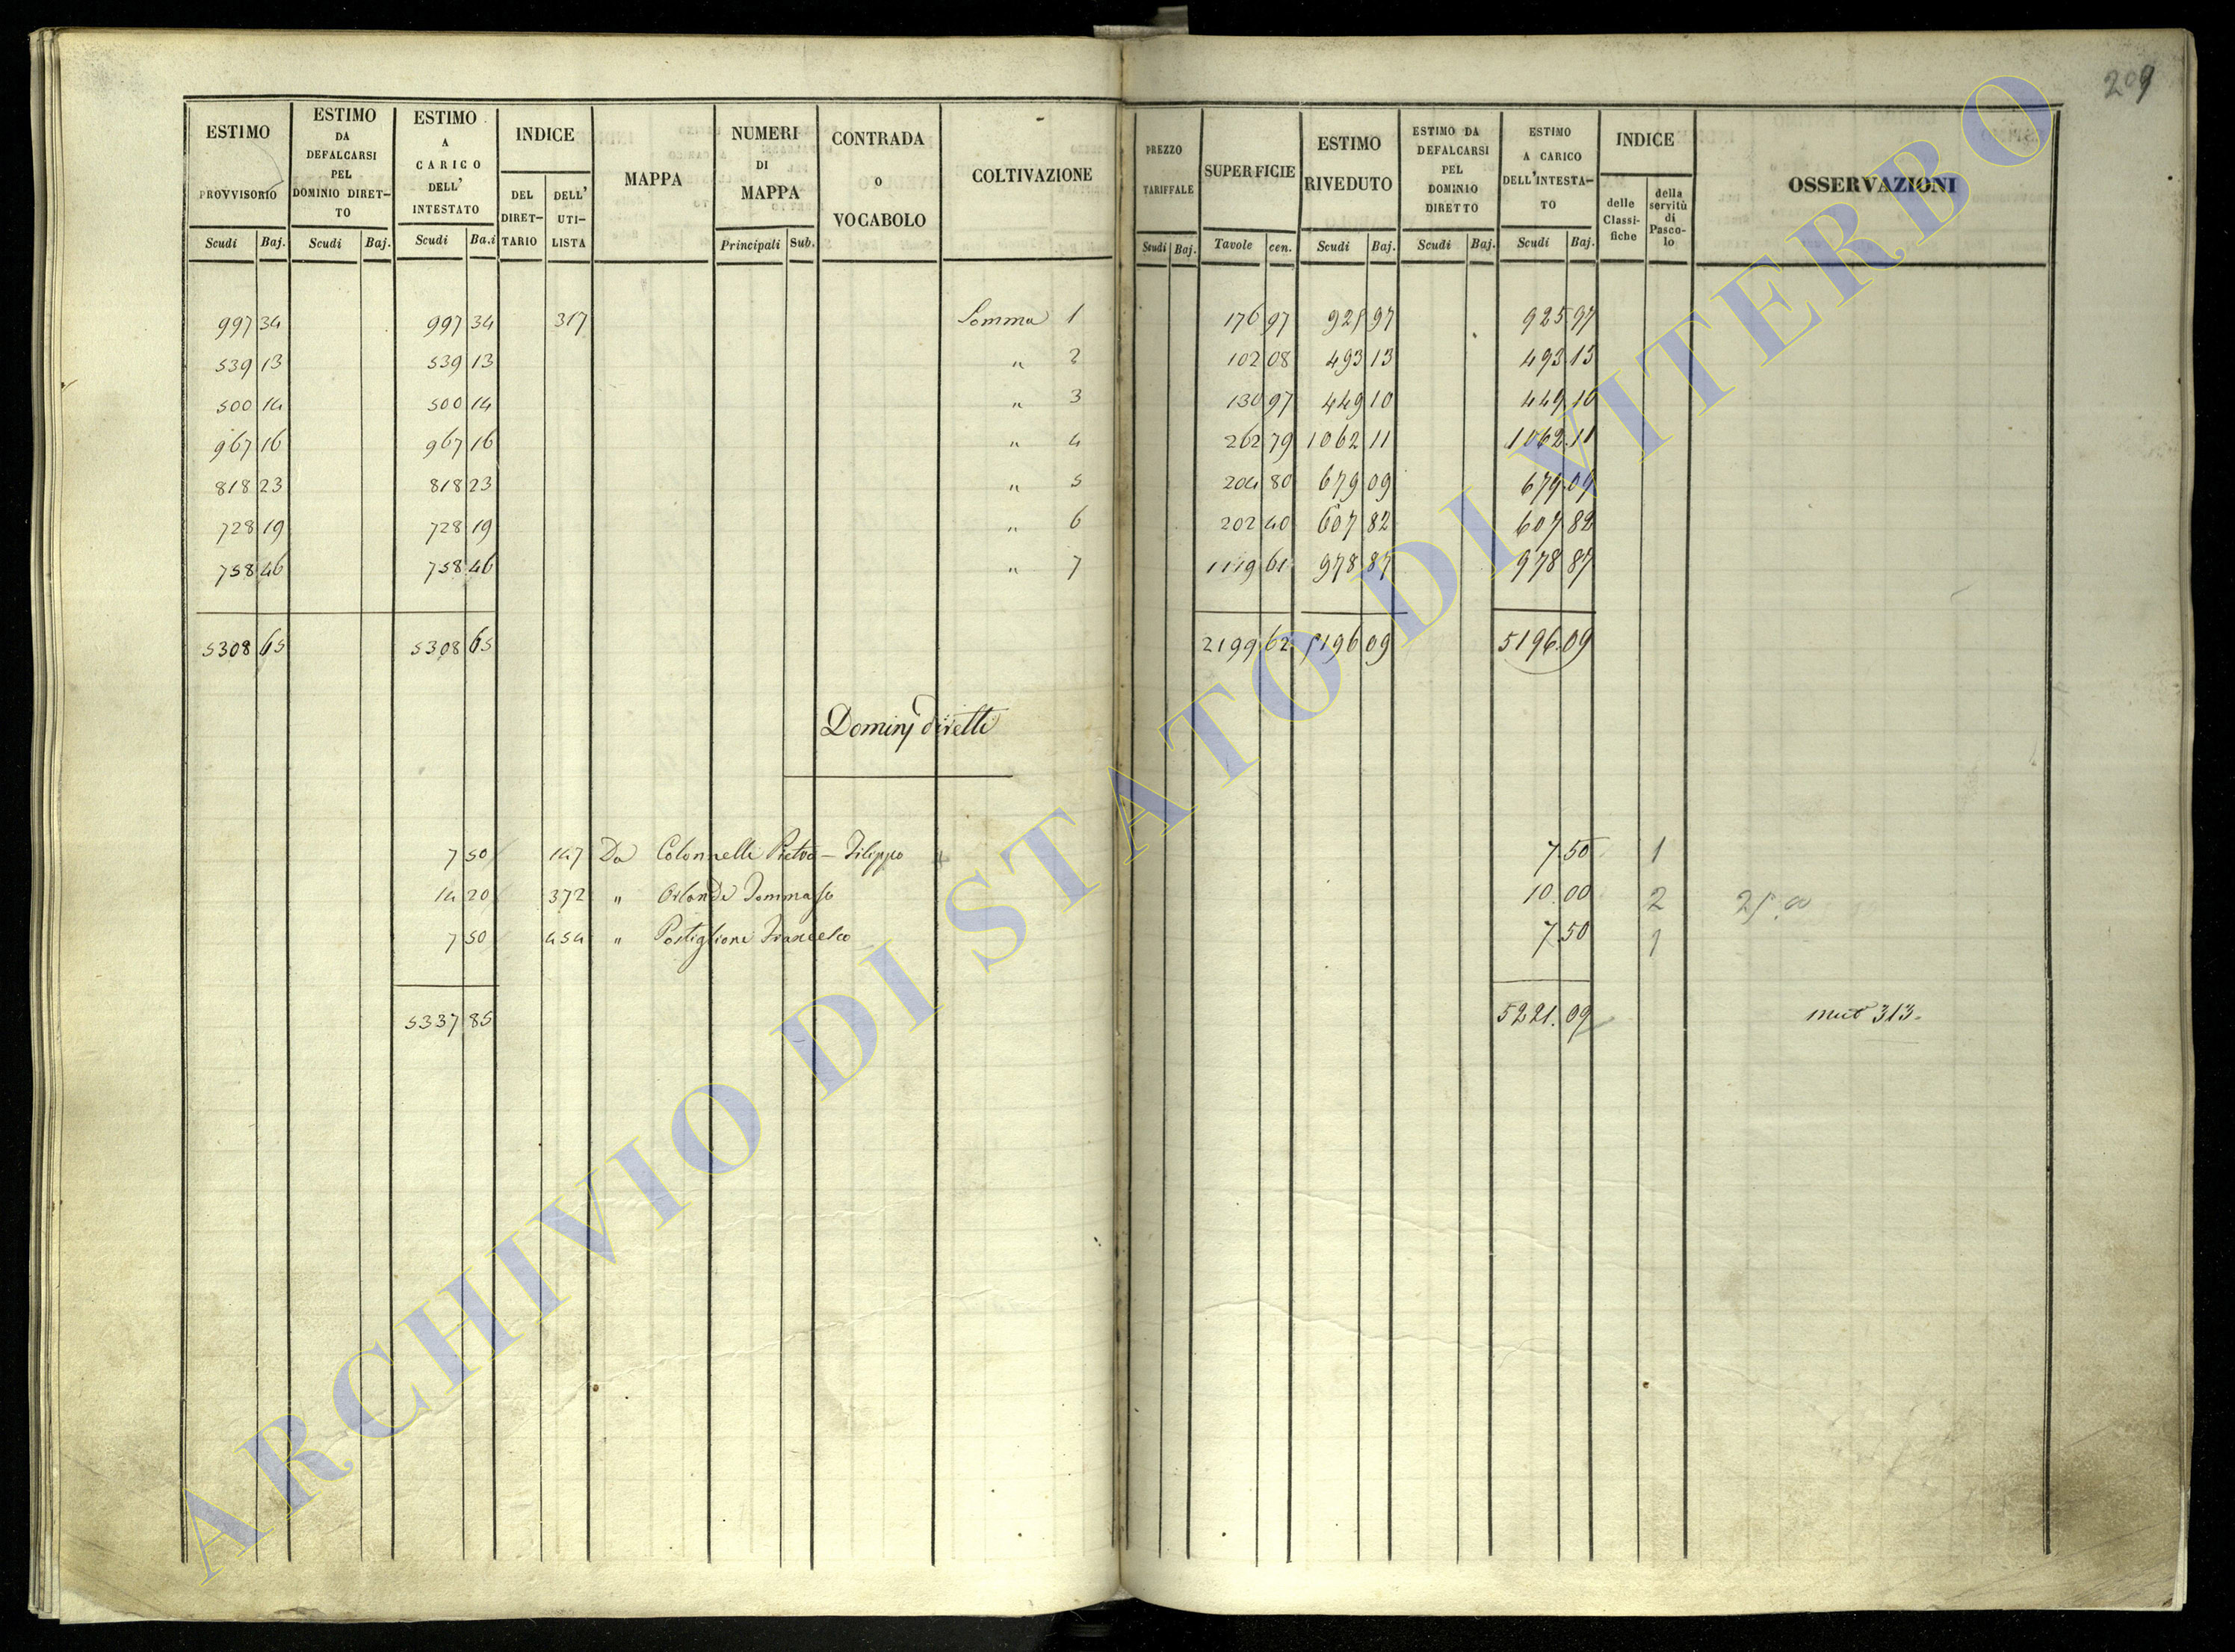 209
ESTIMO PROVVISORIO | ESTIMO DA DEFALCARSI PEL DOMINIO DIRET-TO | ESTIMO A CARICO DELL' INTESTATO | INDICE | MAPPA | NUMERI DI MAPPA | CONTRADA O VOCABOLO | COLTIVAZIONE | PREZZO TARIFFALE | SUPERFICIE | ESTIMO RIVEDUTO | ESTIMO DA DEFALCARSI PEL DOMINIO DIRETTO | ESTIMO A CARICO DELL'INTESTA-TO | INDICE | OSSERVAZIONI
DEL DIRET-TARIO | DELL' UTI-LISTA | delle Classi-fiche | della servitù di Pasco-lo
Scudi | Baj. | Scudi | Baj. | Scudi | Ba.i | Principali | Sub. | Scudi | Baj. | Tavole | cen. | Scudi | Baj. | Scudi | Baj. | Scudi | Baj.
997 34 | 997 34 | 317 | Somma 1 | 176 97 | 925 97 | 925 97
539 13 | 539 13 | " 2 | 102 08 | 493 13 | 493.13
500 14 | 500 14 | " 3 | 130 97 | 449 10 | 449.10
967 16 | 967 16 | " 4 | 262 79 | 1062 11 | 1062.11
818 23 | 818 23 | " 5 | 204 80 | 679 09 | 679.09
728 19 | 728 19 | " 6 | 202 40 | 607 82 | 607 82
758 46 | 758 46 | " 7 | 1119 61 | 978 87 | 978 87
5308 65 | 5308 65 | 2199 62 | 5196 09 | 5196.09
Dominj diretti
7 50 | 147 | Da Colonnelli Pietro - Filippo | 7.50 | 1
14 20 | 372 | " Orlandi Tommaso | 10.00 | 2 | 25.00
7 50 | 454 | " Postiglioni Francesco | 7.50 | 1
5337 85 | 5221.09 | mut 313.
ARCHIVIO DI STATO DI VITERBO